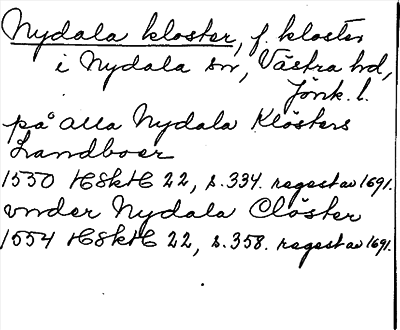 Nydala kloster, f. kloster
i Nydala sn, Västra hd,
Jönk. l.
på alla Nydala Klösters
Landboer
1550 HSkH 22, s. 334. regest av 1691.
vnder Nydala Clöster
1554 HSkH 22, s. 358. regest av 1691.